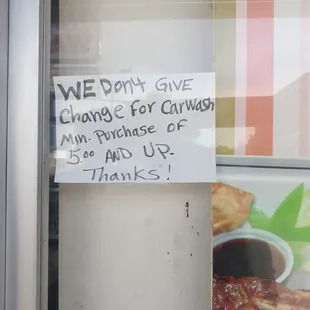 WE DonT GIVE
Change For Carwash
Min. Purchase of
5.00 AND UP-
Thanks!